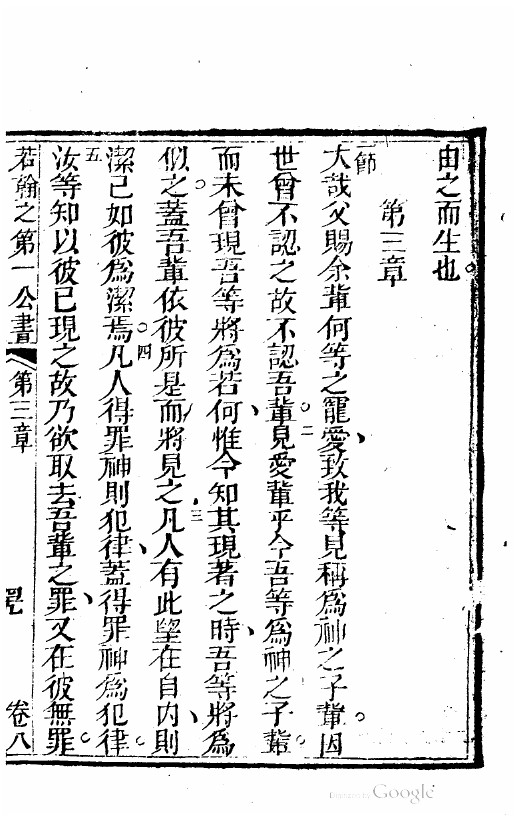 由之而生也。
第三章
節大哉父賜余輩何等之寵愛、致我等見稱爲神之子輩。因
世曾不認之故不認吾輩。二見愛輩乎今吾等爲神之子輩。
而未曾現吾等將爲若何、惟今知其現著之時、吾等將爲
似之。蓋吾輩依彼所是而將見之。三凡人有此望在自內、則
潔己如彼爲潔焉。四凡人得罪神則犯律、蓋得罪神爲犯律。
五汝等知以彼已現之故乃欲取去吾輩之罪、又在彼無罪。
若翰之第一公書 第三章 卷八
Digitized by Google